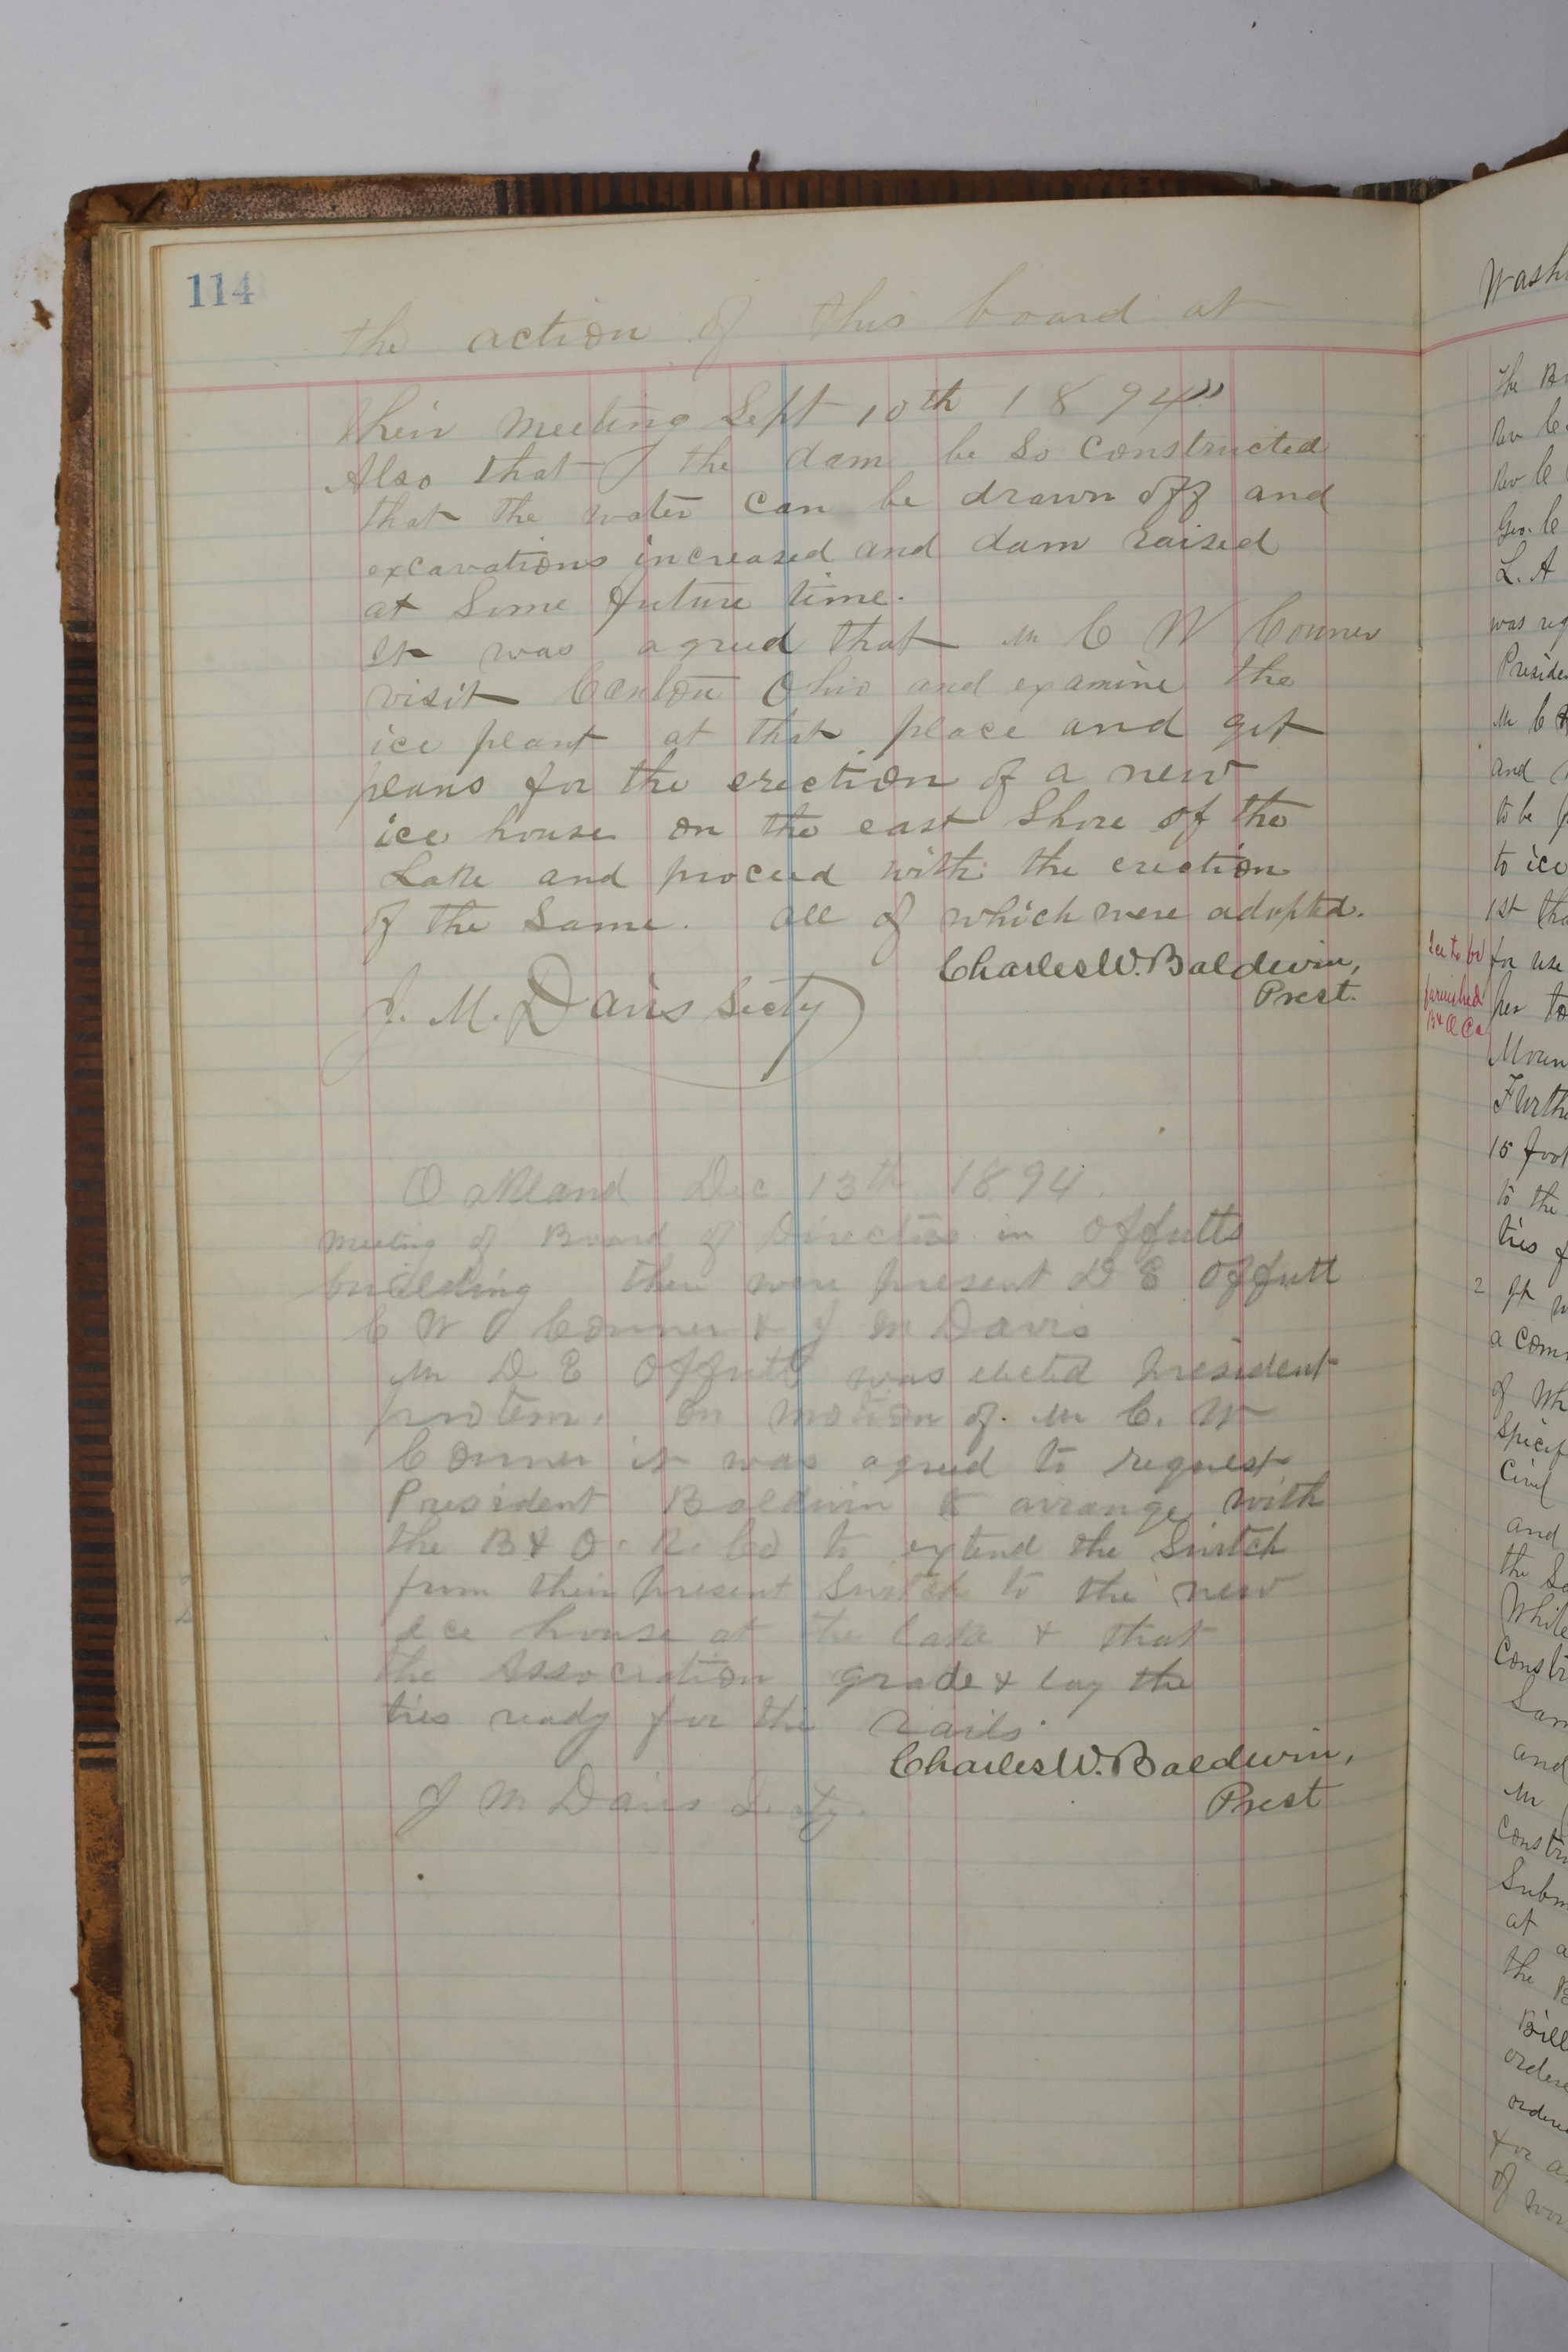 114
the action of this board at
their meeting Sept 10th 1894"
Also that the dam be so constructed
that the water can be drawn off and
excavations increased and dam raised
at Some future time.
It was agreed that Mr C W Conner
visit Canton Ohio and examine the
ice plant at that place and get
plans for the erection of a new
ice house on the east Shore of the
Lake and proceed with the erection
of the Same. all of which were adopted.
Charles W. Baldwin,
Prest.
J. M. Davis Secty
Oakland Dec 13th 1894.
Meeting of Board of Directors in Offutts
building there were present D E Offutt
C W Conner & J M Davis
Mr D E Offutt was elected President
protem. On motion of Mr C. W
Conner it was agreed to request
President Baldwin to arrange with
the B & O. R. Co to extend the Switch
from their present Switch to the new
ice house at the Lake & that
the Association grade & lay the
ties ready for the rails.
Charles W. Baldwin,
Prest
J M Davis Secty.
Wash
The B
Rev
Rev
Geo. C
L. A
was req
Preside
Mr C
and
to be
to ice
1st tha
Ice to be
furnished
B & O Co
for use
per to
Moun
Furthe
15 foot
to the
ties f
2 ft w
a com
of Wh
Specif
Civil
and
the Sa
While
Constr
Sam
and
Mr
Constru
Subm
at a
the B
Bill
ordere
ordere
for a
of wor